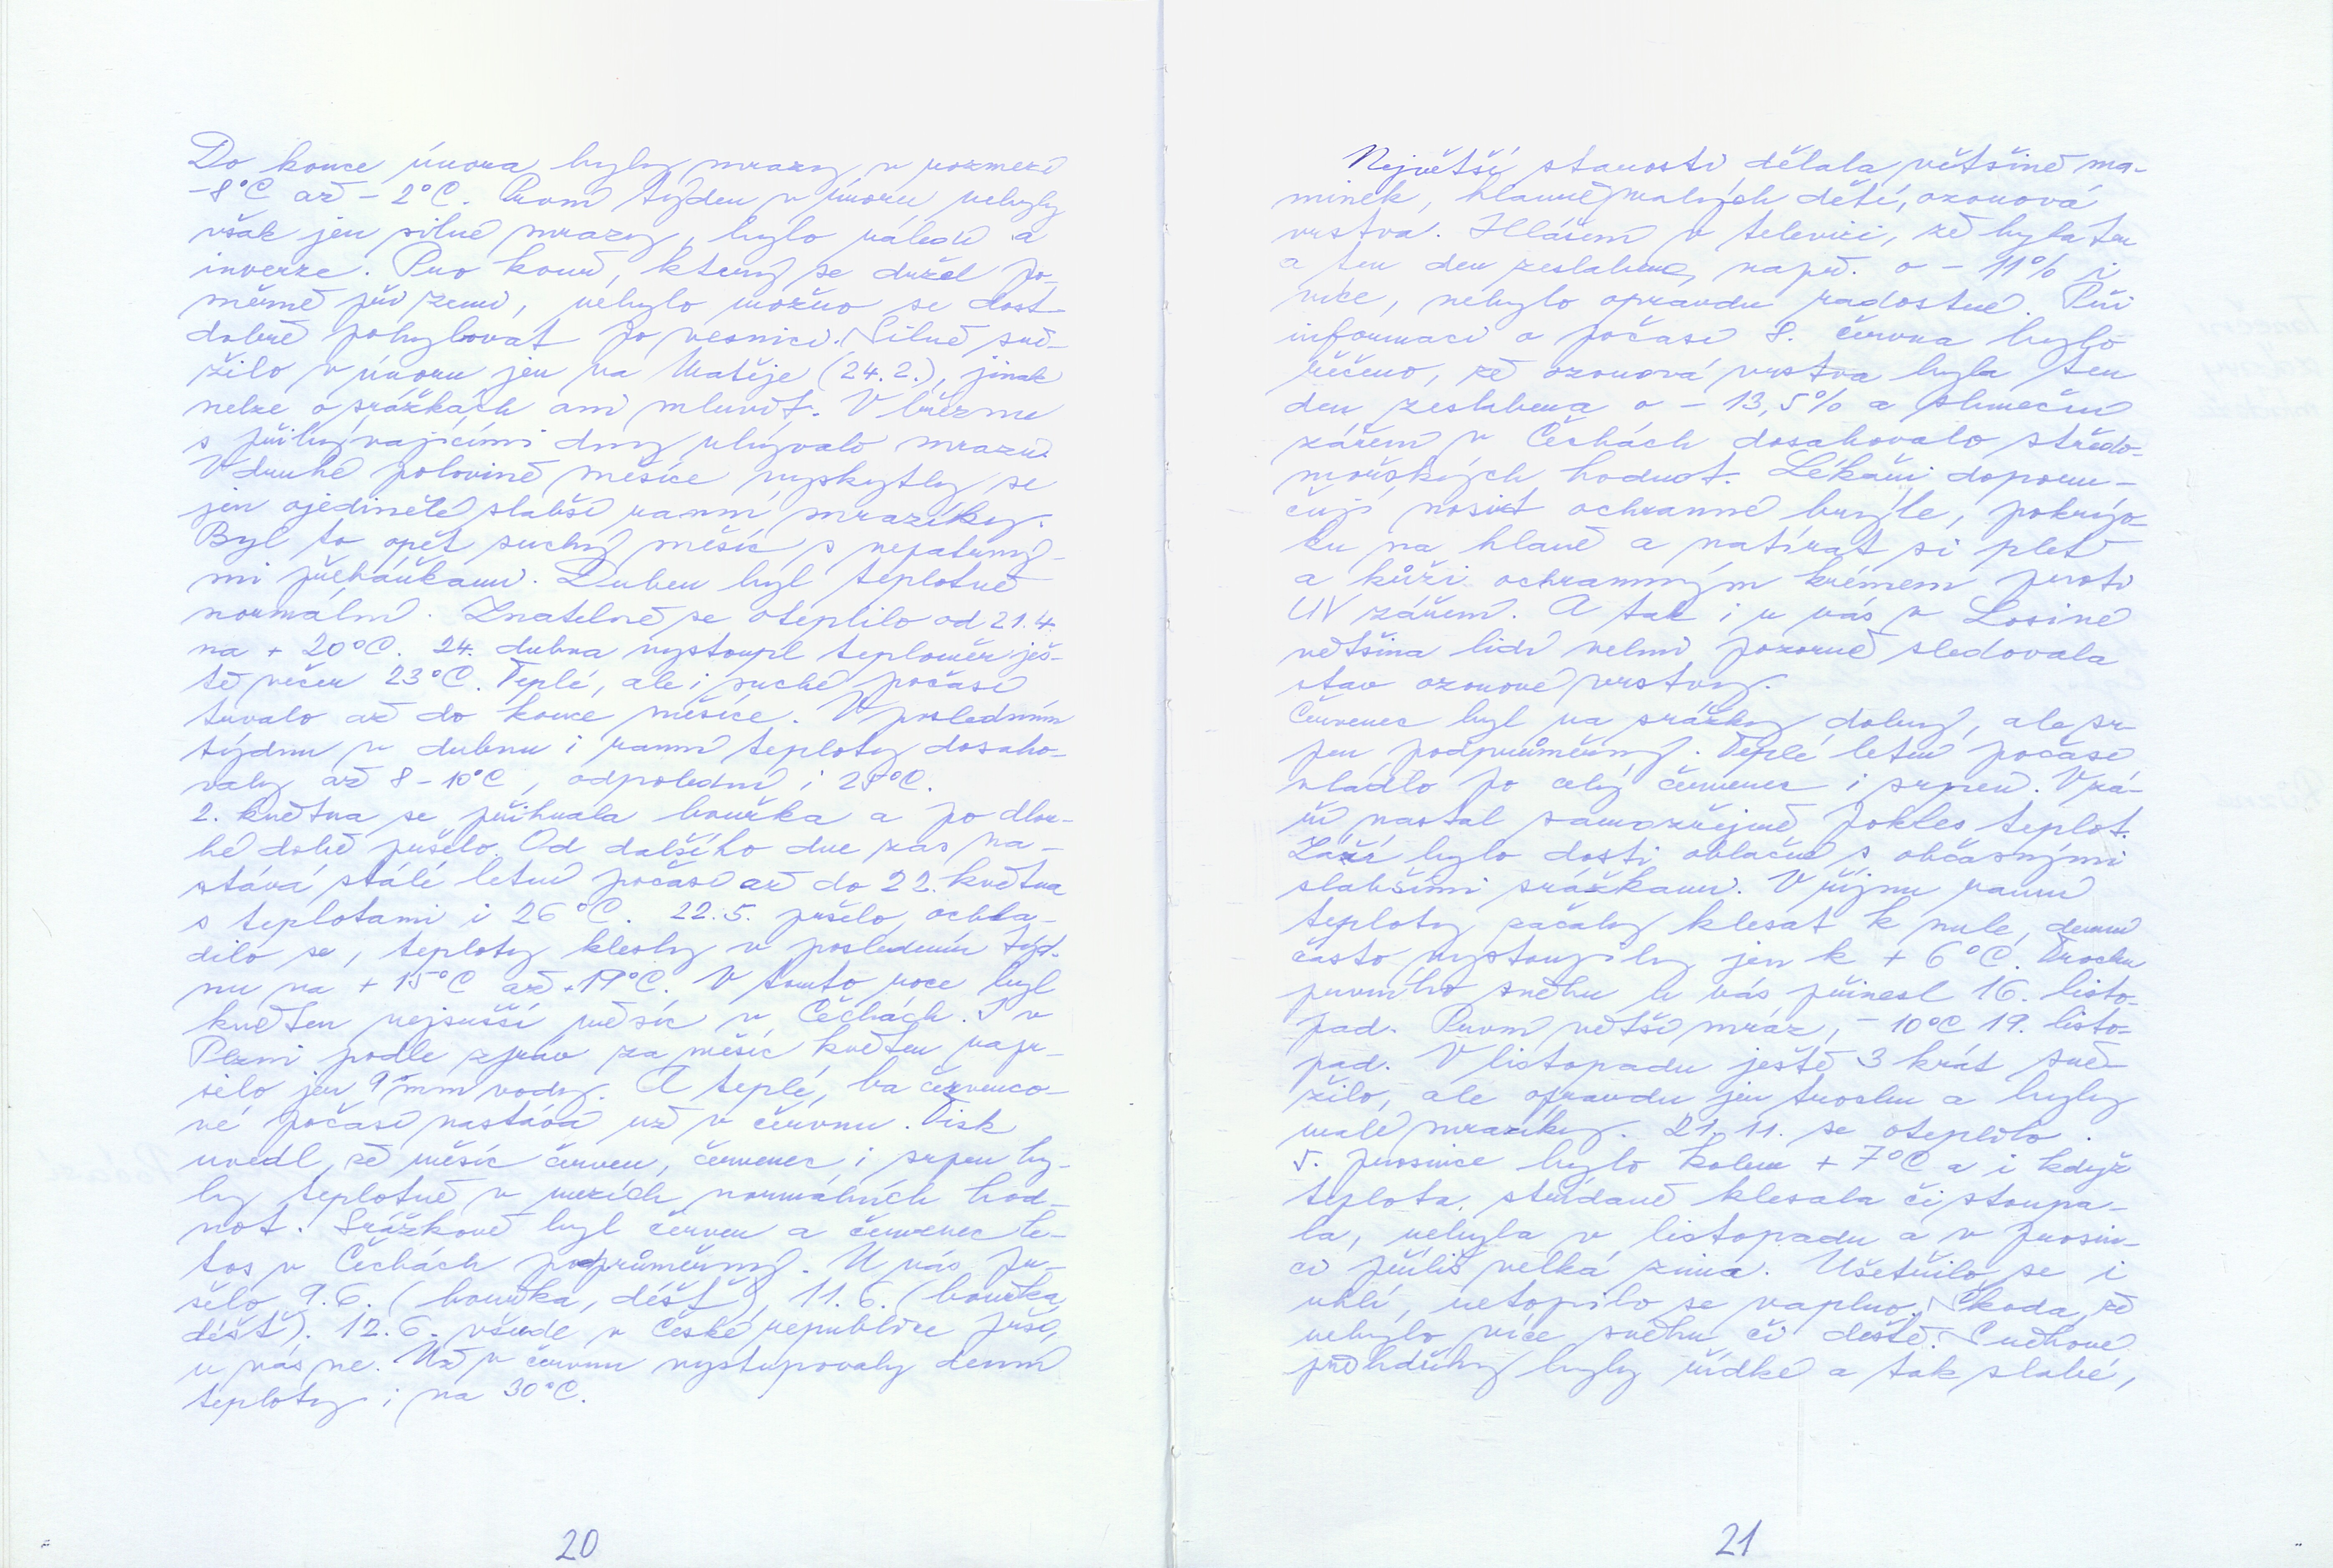 Do konce února byly mrazy v rozmezí
-8°C až -2°C. První týden v únoru nebyly
však jen silné mrazy, bylo náledí a
inverze. Pro kouř, který se držel po-
měrně při zemi, nebylo možno se dost
dobře pohybovat po vesnici. Silně sně-
žilo v únoru jen na Matěje (24.2.), jinak
nelze o srážkách ani mluvit. V březnu
s přibývajícími dny ubývalo mrazů.
V druhé polovině měsíce vyskytly se
jen ojediněle slabší ranní mrazíky.
Byl to opět suchý měsíc s nepatrný-
mi přeháňkami. Duben byl teplotně
normální. Znatelně se oteplilo od 21.4.
na + 20°C. 24. dubna vystoupl teploměr ješ-
tě večer 23°C. Teplé, ale i suché počasí
trvalo až do konce měsíce. V posledním
týdnu v dubnu i ranní teploty dosaho-
valy až 8-10°C, odpolední i 25°C.
2. května se přihnala bouřka a po dlou-
hé době pršelo. Od dalšího dne zas na-
stává stálé letní počasí až do 22. května
s teplotami i 26°C. 22.5. pršelo, ochla-
dilo se, teploty klesly v posledním týd-
nu na + 15°C až +19°C. V tomto roce byl
květen nejsušší měsíc v Čechách. I v
Plzni podle zpráv za měsíc květen napr-
šelo jen 9 mm vody. A teplé, ba červenco-
vé počasí nastává už v červnu. Tisk
uvedl, že měsíc červen, červenec i srpen by-
ly teplotně v mezích normálních hod-
not. Srážkově byl červen a červenec le-
tos v Čechách podprůměrný. U nás pr-
šelo 9.6. (bouřka, déšť), 11.6. (bouřka,
déšť). 12.6. všude v České republice prší,
u nás ne. Už v červnu vystupovaly denní
teploty i na 30°C.
20
Největší starosti dělala většině ma-
minek, hlavně malých dětí, ozonová
vrstva. Hlášení v televizi, že byla ten
a ten den zeslabena, např. o - 11% i
více, nebylo opravdu radostné. Při
informaci o počasí 8. června bylo
řečeno, že ozonová vrstva byla ten
den zeslabena o - 13,5% a sluneční
záření v Čechách dosahovalo středo-
mořských hodnot. Lékaři doporu-
čují nosit ochranné brýle, pokrýv-
ku na hlavě a natírat si pleť
a kůži ochranným krémem proti
UV záření. A tak i u nás v Losiné
většina lidí velmi pozorně sledovala
stav ozonové vrstvy.
Červenec byl na srážky dobrý, ale sr-
pen podprůměrný. Teplé letní počasí
vládlo po celý červenec i srpen. V zá-
ří nastal samozřejmě pokles teplot.
Září bylo dosti oblačné s občasnými
slabšími srážkami. V říjnu ranní
teploty začaly klesat k nule, denní
často vystoupily jen k + 6°C. Trochu
prvního sněhu u nás přinesl 16. listo-
pad. První větší mráz, - 10°C 19. listo-
pad. V listopadu ještě 3 krát sně-
žilo, ale opravdu jen trochu a byly
malé mrazíky. 21. 11. se oteplilo.
5. prosince bylo kolem + 7°C a i když
teplota střídavě klesala či stoupa-
la, nebyla v listopadu a v prosin-
ci příliš velká zima. Ušetřilo se i
uhlí, netopilo se naplno. Škoda, že
nebylo více sněhu či deště. Sněhové
předhůřky byly řídké a tak slabé,
21